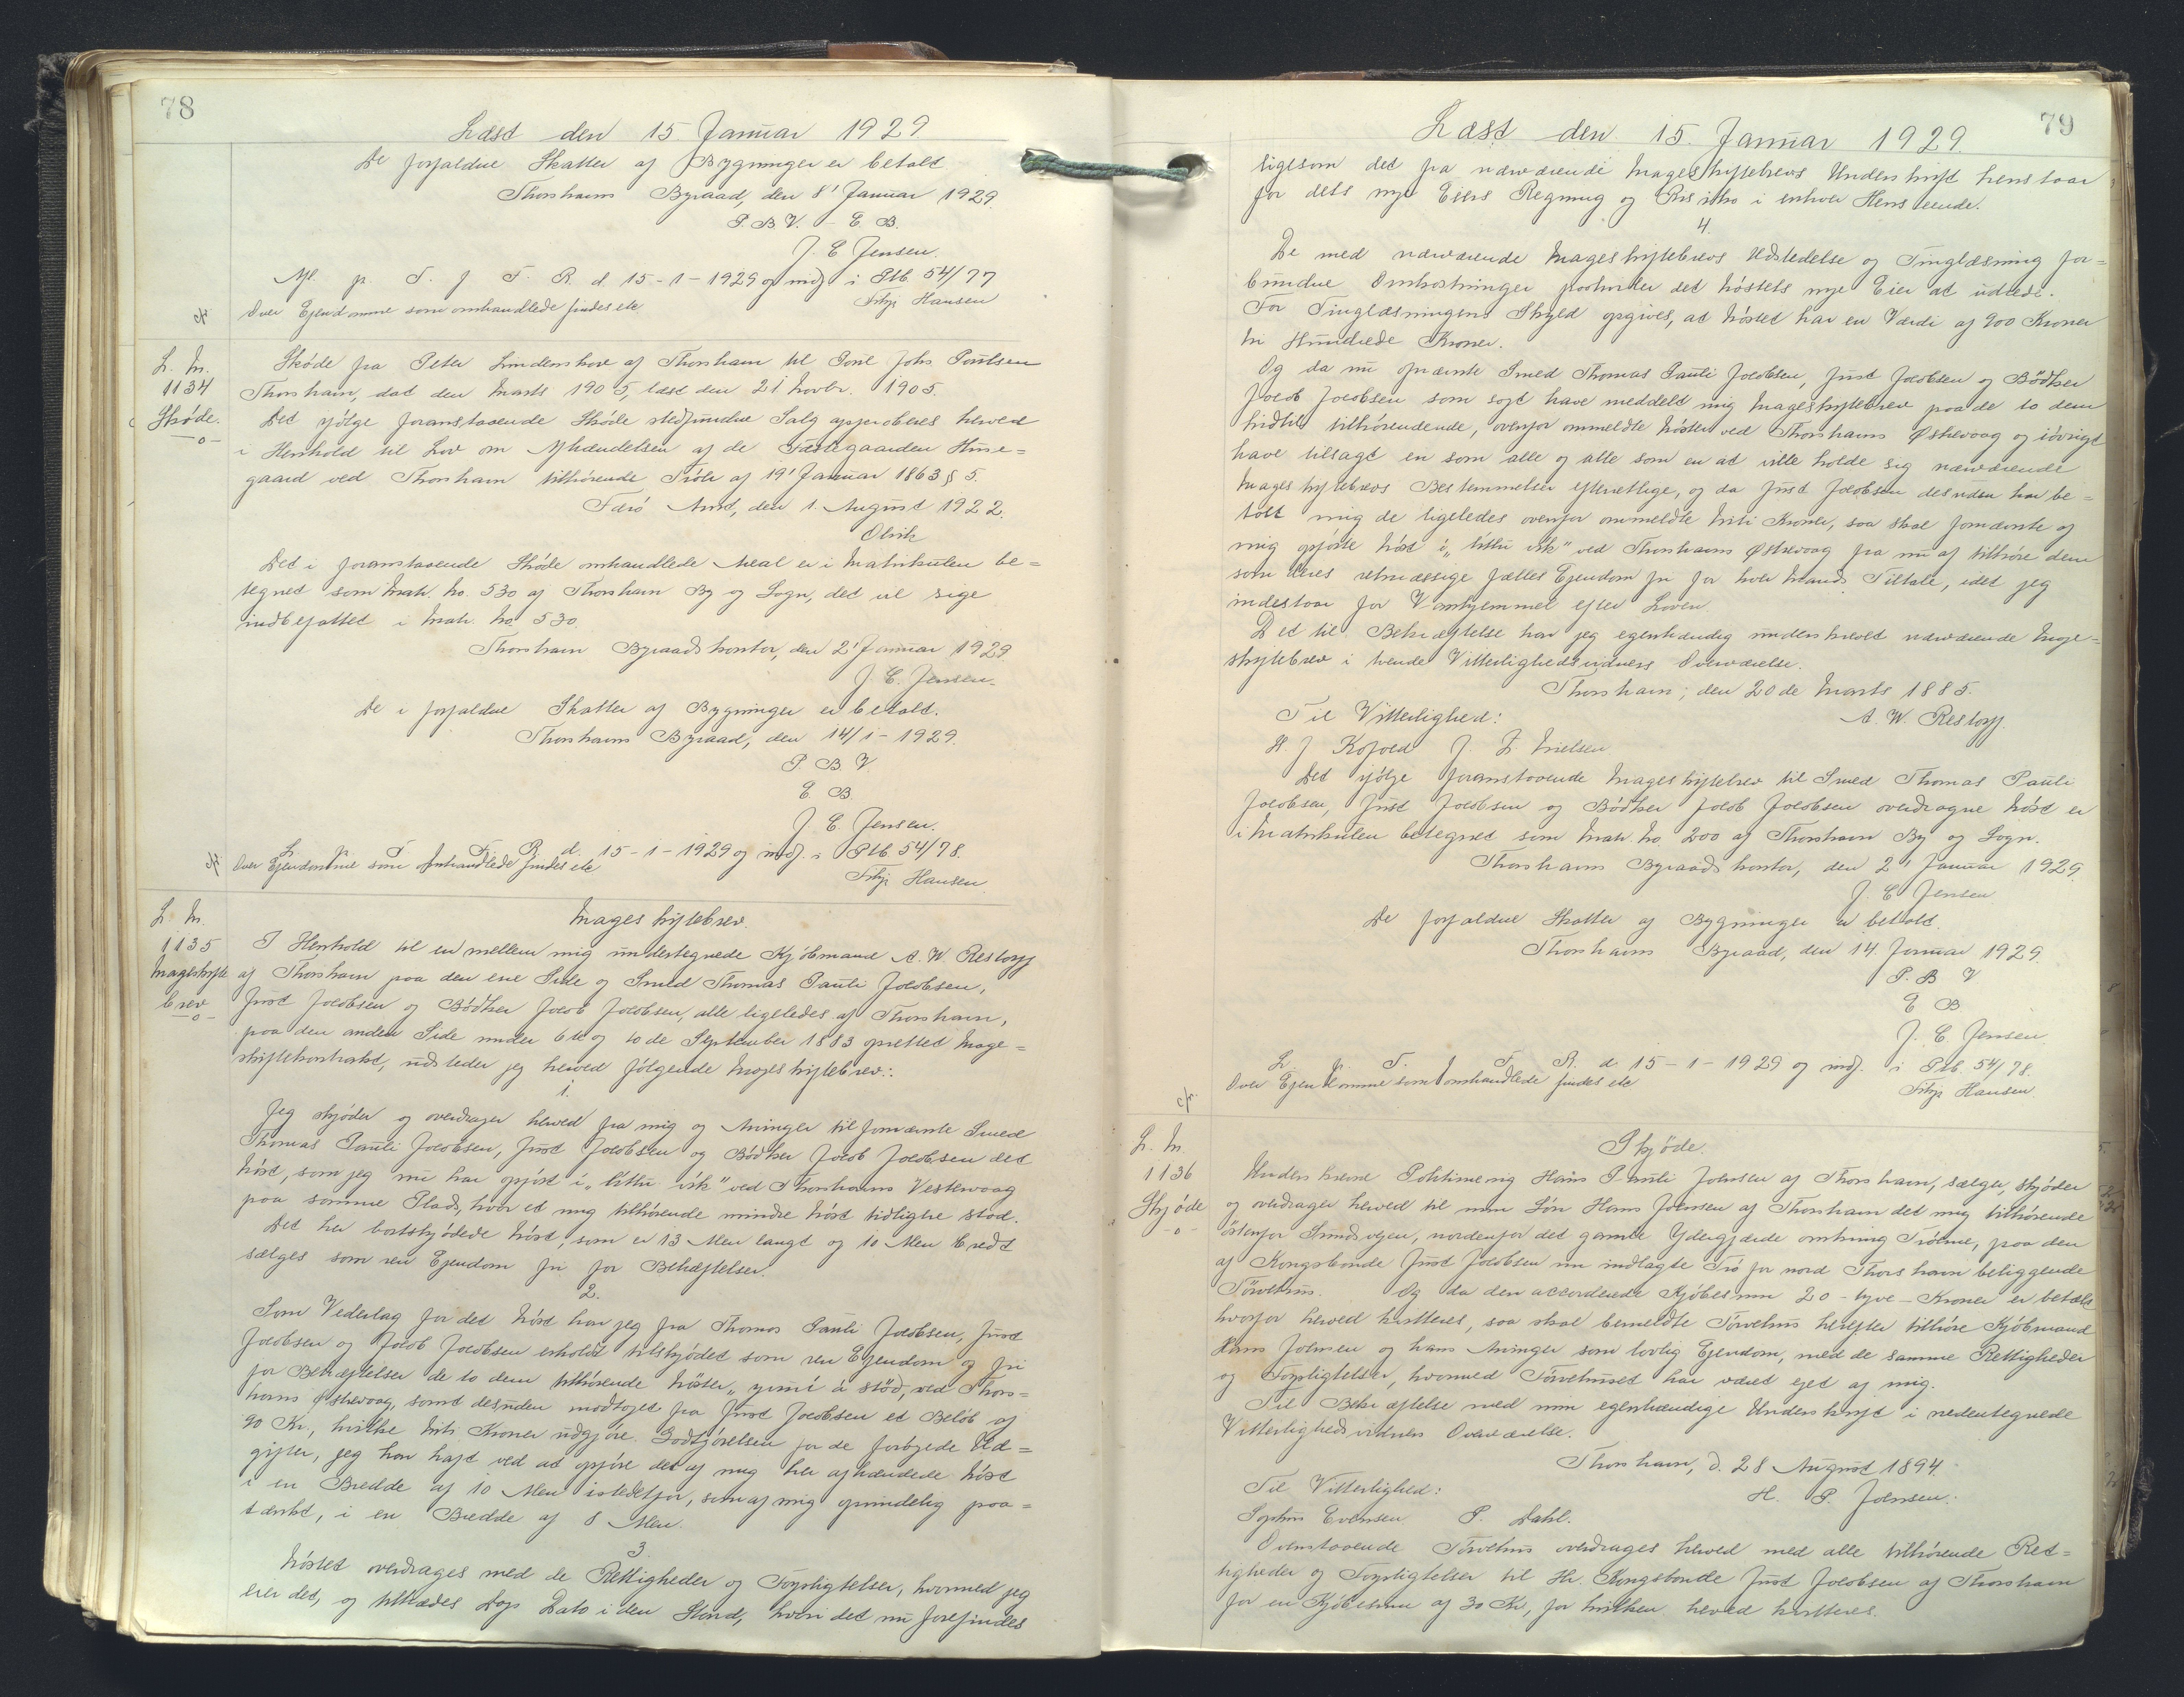 78
Læst den 15 Januar 1929
De forfaldne Skatter af Bygninger er betalt
Thorshavns Byraad, den 8' Januar 1929.
P. B V. - E. B.
J. C Jensen.
Afl. p. T. f F. R. d. 15-1-1929 og indf. i Ptb. 54/77
Over Ejendomme som omhandlede findes etc
Filip Hansen
L. No. 1134 Skøde. -o-
Skøde fra Peter Lindenskov af Thorshavn til Poul Johs Poulsen
Thorshavn, dat den Marts 1905, læst den 21. Novbr. 1905.
Det ifølge foranstaaende Skøde stedfundne Salg approberes herved
i Henhold til Lov om Afhændelsen af de Fæstegaarden Huse=
gaard ved Thorshavn tilhørende Trøer af 19' Januar 1863 § 5.
Færø Amt, den 1. August 1922.
Olrik
Det i foranstaaende Skøde omhandlede Areal er i Matrikulen be=
tegnet som Matr. No. 530 af Thorshavn By og Sogn, det vil sige
indbefattet i Matr. No. 530.
Thorshavn Byraadskontor, den 2' Januar 1929
J. C. Jensen.
De i forfaldne Skatter af Bygninger er betalt.
Thorshavns Byraad, den 14/1-1929.
P. B. V.
E. B.
J. C. Jensen.
L. p. T. f. F. R. d. 15-1-1929 og indf. i Ptb. 54/78.
Over Ejendomme som omhandlede findes etc
Filip Hansen
L. No. 1135 Mageskifte brev -o-
Mageskiftebrev.
I Henhold til en mellem mig undertegnede Kjøbmand A. W. Restorff
af Thorshavn paa den ene Side og Smed Thomas Pauli Jacobsen,
Just Jacobsen og Bødker Jacob Jacobsen, alle ligeledes af Thorshavn,
paa den anden Side under 6te og 10de September 1883 oprettet Mage=
skiftekontrakt, udsteder jeg herved følgende Mageskiftebrev:
1.
Jeg skjøder og overdrager herved fra mig og Arvinger til fornævnte Smed
Thomas Pauli Jacobsen, Just Jacobsen og Bødker Jacob Jacobsen det
Nøst, som jeg nu har opført i „lítlu vík" ved Thorshavns Vestervaag
paa samme Plads, hvor et mig tilhørende mindre Nøst tidligere stod.
Det her bortskjødede Nøst, som er 13 Alen langt og 10 Alen bredt
sælges som ren Ejendom fri for Behæftelser.
2.
Som Vederlag for det Nøst har jeg fra Thomas Pauli Jacobsen, Just
Jacobsen og Jacob Jacobsen erholdt tilskjødet som ren Ejendom og fri
for Behæftelser de to dem tilhørende Nøster, ved Thors=
havns Østrevaag, samt desuden modtaget fra Just Jacobsen et Beløb af
90 Kr, hvilke Kroner udgjøre Godtgjørelsen for de forøgede Ud=
gifter, jeg har haft ved at opføre det af mig her afhændede Nøst
i en Bredde af 10 Alen istedetfor, som af mig oprindelig paa=
tænkt, i en Bredde af 8 Alen.
3.
Nøstet overdrages med de Rettigheder og Forpligtelser, hvormed jeg
eier det, og tiltrædes Dags Dato i den Stand, hvori det nu forefindes
79
Læst den 15. Januar 1929.
ligesom det fra nærværende Mageskiftebrevs Underskrift henstaar
for dets nye Eiers Regning og Risiko i enhver Henseende.
4.
De med nærværende Mageskiftebrevs Udstedelse og Tinglæsning for=
bundne Omkostninger paahviler det Nøstets nye Eier at udrede.
For Tinglæsningens Skyld opgives, at Nøstet har en Værdi af 900 Kroner
ni Hundrede Kroner.
Og da nu fornævnte Smed Thomas Pauli Jacobsen, Just Jacobsen og Bødker
Jacob Jacobsen som sagt have meddelt mig Mageskiftebrev paa de to dem
hidtil tilhørendende, ovenfor ommeldte Nøster ved Thorshavns Østrevaag og iøvrigt
have tilsagt en som alle og alle som en at ville holde sig nærværende
Mageskiftebrevs Bestemmelser efterrettlige, og da Just Jacobsen desuden har be=
talt mig de ligeledes ovenfor ommeldte Kroner, saa skal fornævnte af
mig opførte Nøst i „lítlu vík" ved Thorshavns Østrevaag fra nu af tilhøre dem
som deres retmæssige fælles Ejendom fri for hver Mands Tiltale, idet jeg
indestaar for Vanhjemmel efter Loven.
Det til Bekræftelse har jeg egenhændig underskrevet nærværende Mage=
skiftebrev i tvende Vitterlighedsvidners Overværelse.
Thorshavn, den 20de Marts 1885.
Til Vitterlighed:
A. W. Restorff.
H. J Kofoed J. L Nielsen
Det ifølge foranstaaende Mageskiftebrev til Smed Thomas Pauli
Jacobsen, Just Jacobsen og Bødker Jacob Jacobsen overdragne Nøst er
i Matrikulen betegnet som Matr. No. 200 af Thorshavn By og Sogn.
Thorshavns Byraadskontor, den 2' Januar 1929.
J. C Jensen
De forfaldne Skatter af Bygninger er betalt.
Thorshavns Byraad, den 14. Januar 1929.
P. B V
E B
J. C. Jensen.
L. p. T. f F. R. d. 15-1-1929 og indf. i Ptb. 54/78.
Over Ejendomme som omhandlede findes etc
Filip Hansen.
L. No. 1136 Skjøde -o-
Skjøde.
Underskrevne Hans Pauli Joensen af Thorshavn, sælger, skjøder
og overdrager herved til min Søn Hans Joensen af Thorshavn det mig tilhørende
østenfor Sundsvejen, nordenfor det gamle Ydergjærde omkring Trøerne, paa den
af Kongsbonde Just Jacobsen nu indlagte Trø for nord Thorshavn beliggende
Tørvehus. Og da den accorderede Kjøbesum 20 - tyve - Kroner er betalt
hvorfor herved kvitteres, saa skal bemeldte Tørvehus herefter tilhøre Kjøbmand
Hans Joensen og hans Arvinger som lovlig Ejendom, med de samme Rettigheder
og Forpligtelser, hvormed Tørvehuset har været ejet af mig.
Til Bekræftelse med min egenhændige Underskrift i nedentegnede
Vitterlighedsvidners Overværelse.
Thorshavn, d. 28 August 1894.
Til Vitterlighed:
H. P. Joensen.
Sophus Evensen P. Dahl.
Ovenstaaende Tørvehus overdrages herved med alle tilhørende Ret=
tigheder og Forpligtelser til Hr. Kongsbonde Just Jacobsen af Thorshavn
for en Kjøbesum af 30 Kr, for hvilken herved kvitteres.